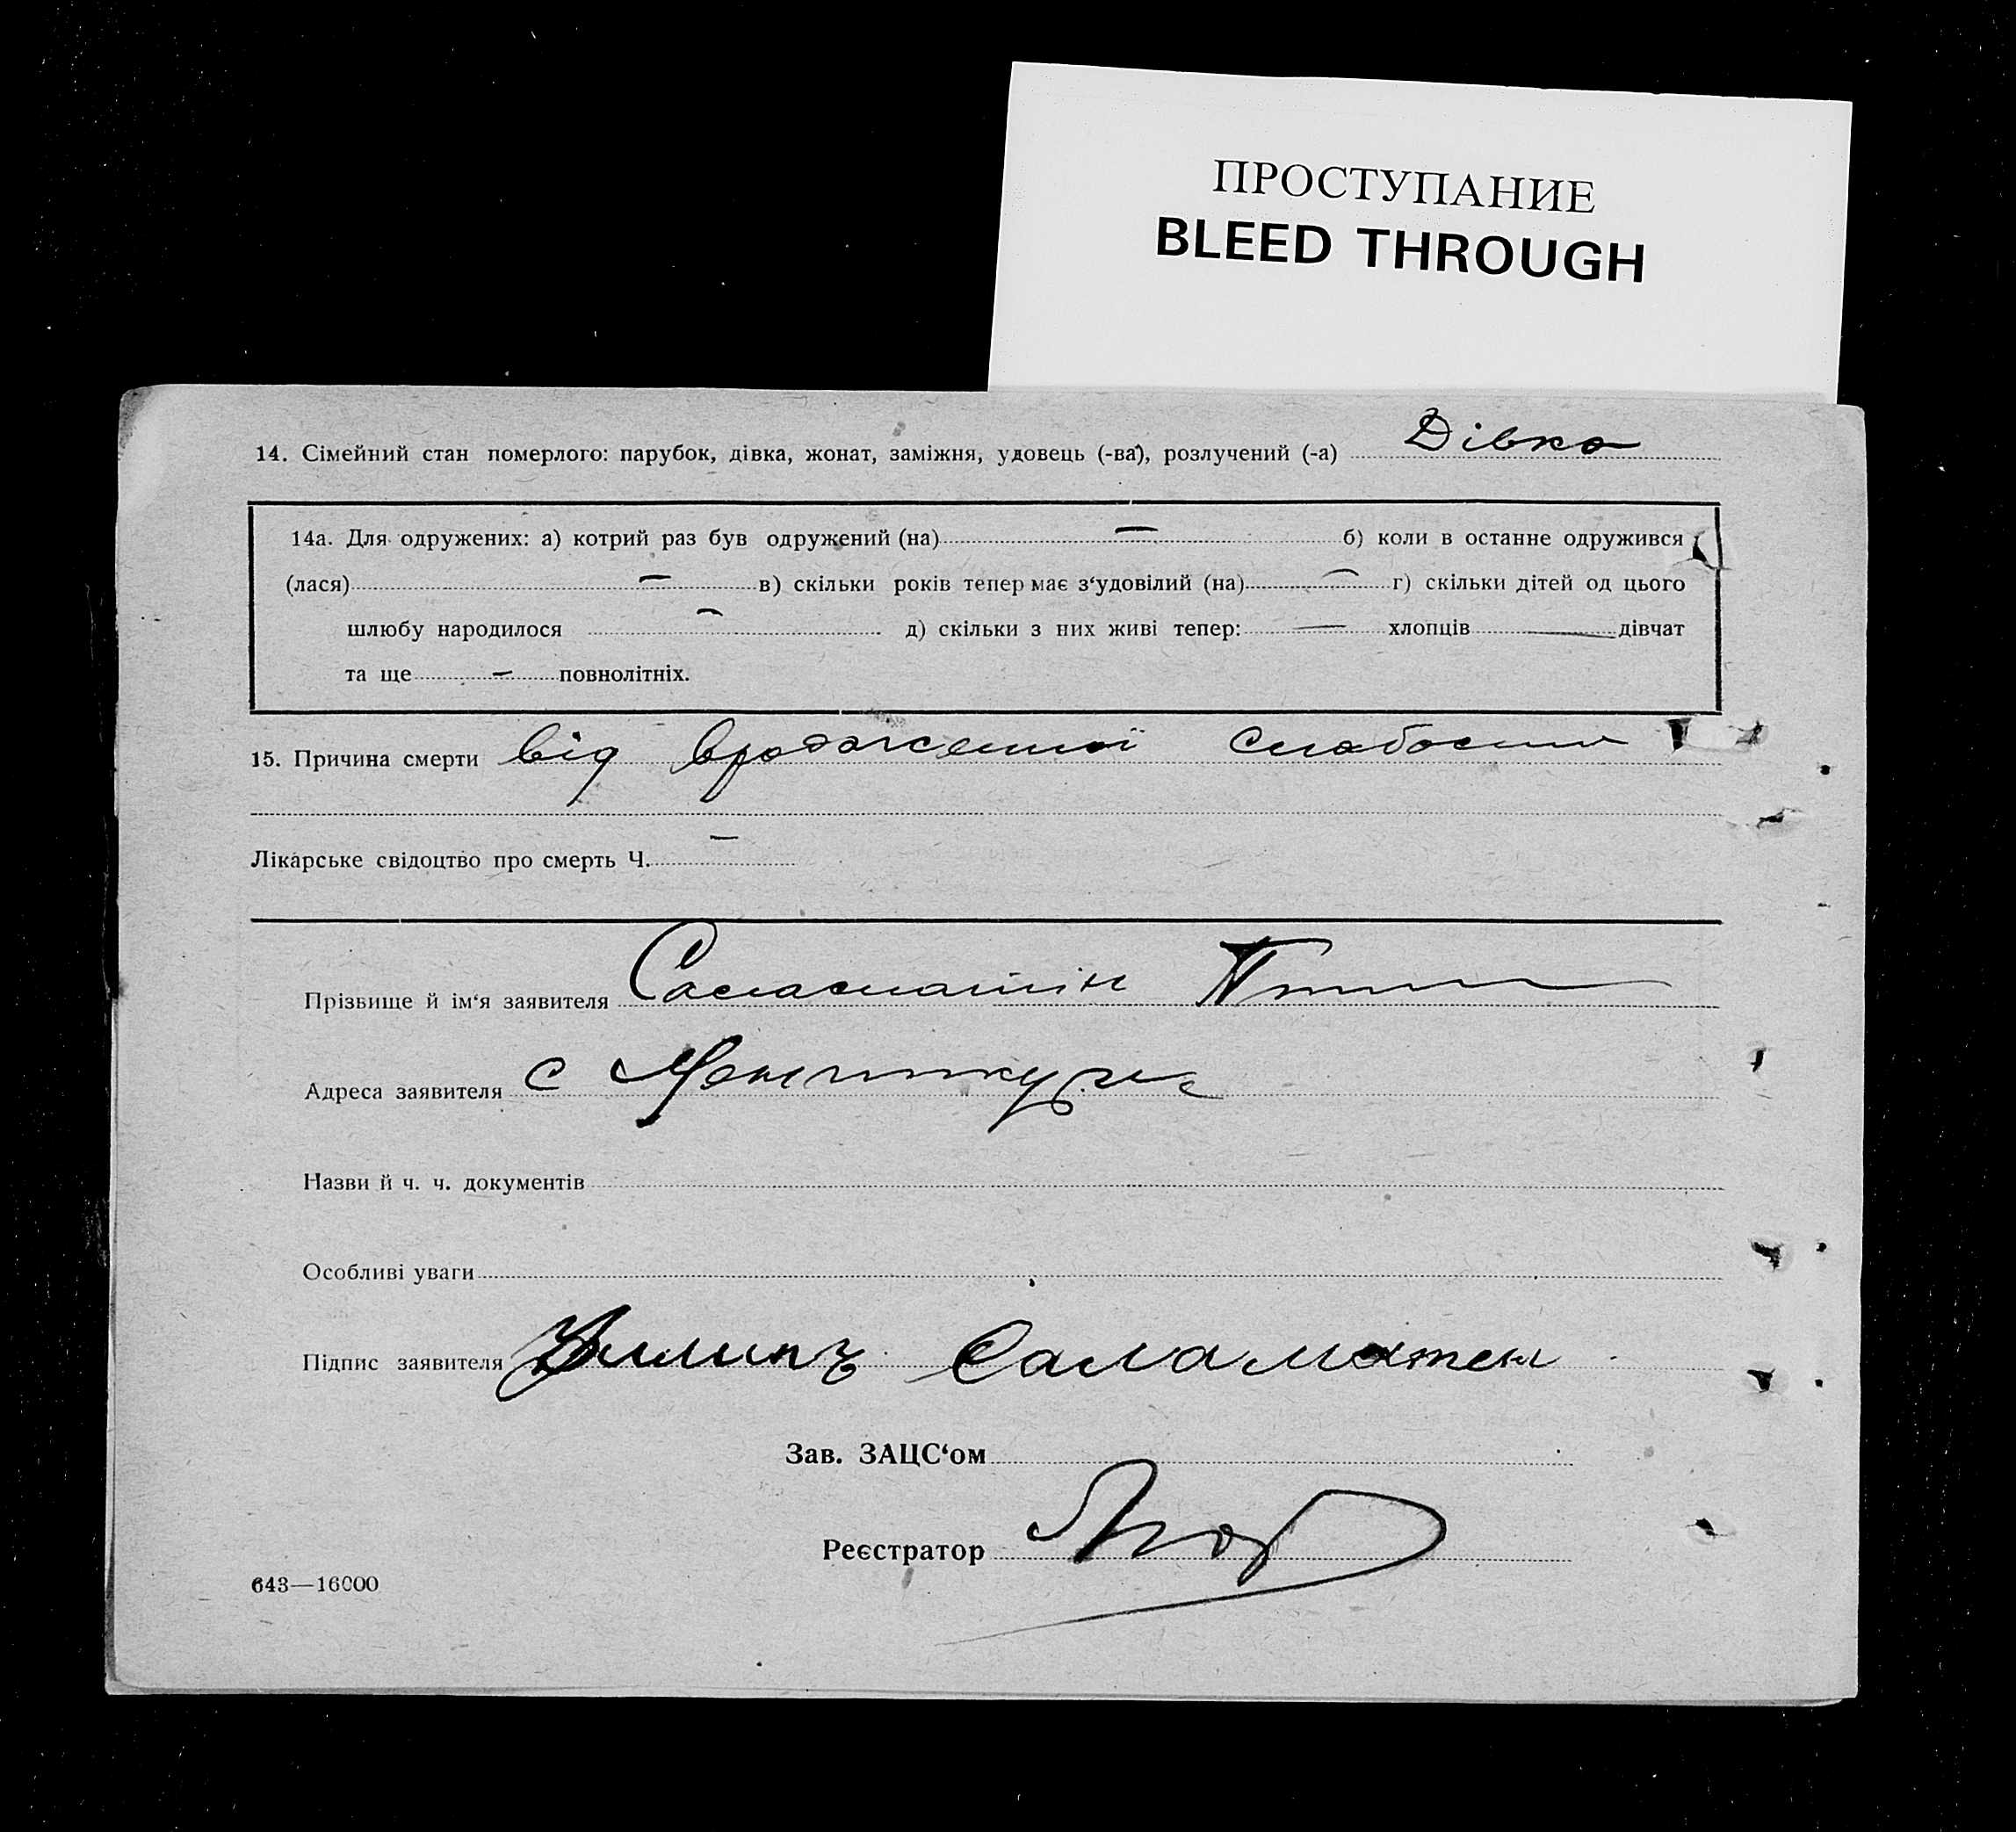 ПРОСТУПАНИЕ
BLEED THROUGH
14. Сімейний стан померлого: парубок, дівка, жонат, заміжня, удовець (-ва), розлучений (-а) Дівка
14а. Для одружених: а) котрий раз був одружений (на) — б) коли в останне одружився
(лася) — в) скільки років тепер має з‘удовілий (на) — г) скільки дітей од цього
шлюбу народилося — д) скільки з них живі тепер: — хлопців — дівчат
та ще — повнолітніх.
15. Причина смерти від врожденної слабости
Лікарське свідоцтво про смерть Ч. —
Прізвище й ім‘я заявителя Саламатін
Адреса заявителя с
Назви й ч. ч. документів
Особливі уваги
Підпис заявителя Филипъ Саламатен
Зав. ЗАЦС‘ом
Реєстратор
643—16000